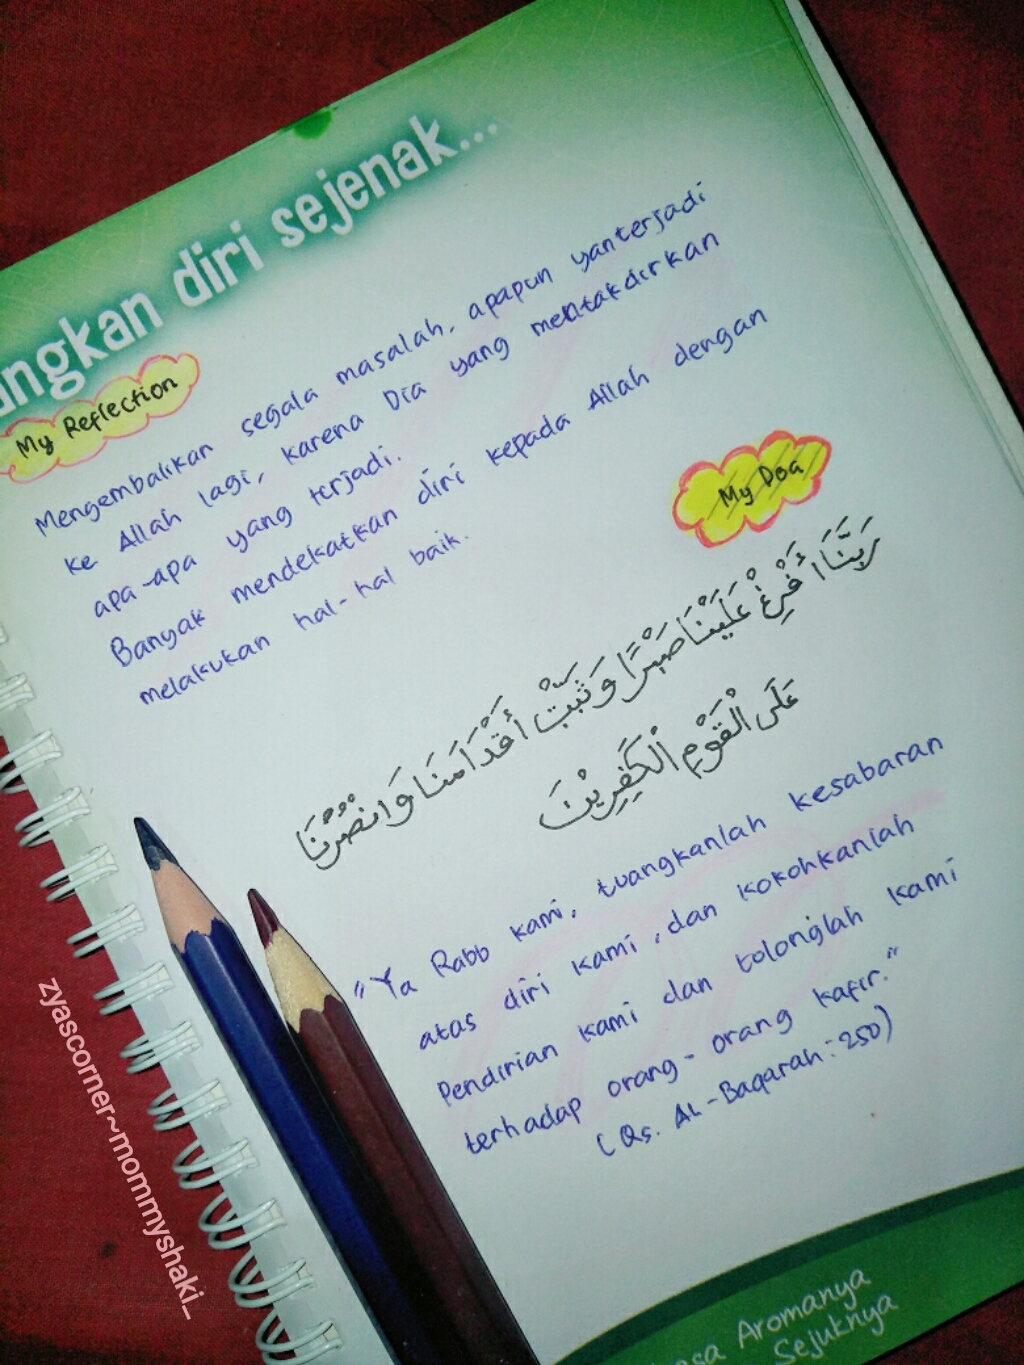 diri sejenak...
My Reflection
Mengembalikan segala masalah, apapun yanterjadi
ke Allah lagi, karena Dia yang mentakdirkan
apa-apa yang terjadi.
Banyak mendekatkan diri kepada Allah dengan
melakukan hal-hal baik.
My Doa
رَبَّنَا أَفْرِغْ عَلَيْنَا صَبْرًا وَثَبِّتْ أَقْدَامَنَا وَانْصُرْنَا
عَلَى الْقَوْمِ الْكَفِرِيْنَ
"Ya Rabb kami, tuangkanlah kesabaran
atas diri kami, dan kokohkanlah
Pendirian kami dan tolonglah kami
terhadap orang-orang kafir."
(Qs. Al-Baqarah: 250)
Aromanya
Sejuknya
zyascorner~mommyshaki_